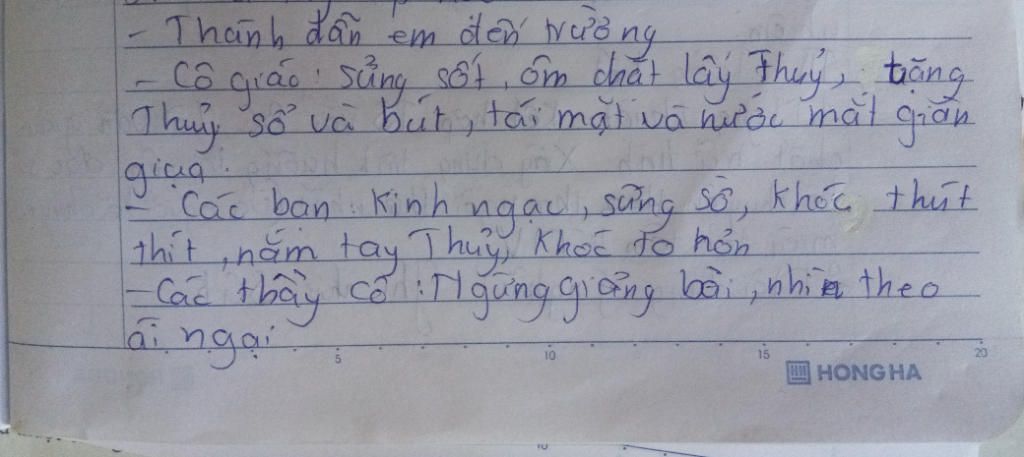 - Thành dẫn em đến trường
- Cô giáo: sửng sốt, ôm chặt lấy Thuỷ, tặng
Thuỷ sổ và bút, tái mặt và nước mắt giàn
giụa.
- Các bạn: Kinh ngạc, sững sờ, khóc thút
thít, nắm tay Thuỷ, khóc to hơn
- Các thầy cô: Ngừng giảng bài, nhìn theo
ái ngại
5 10 15 20
HONG HA